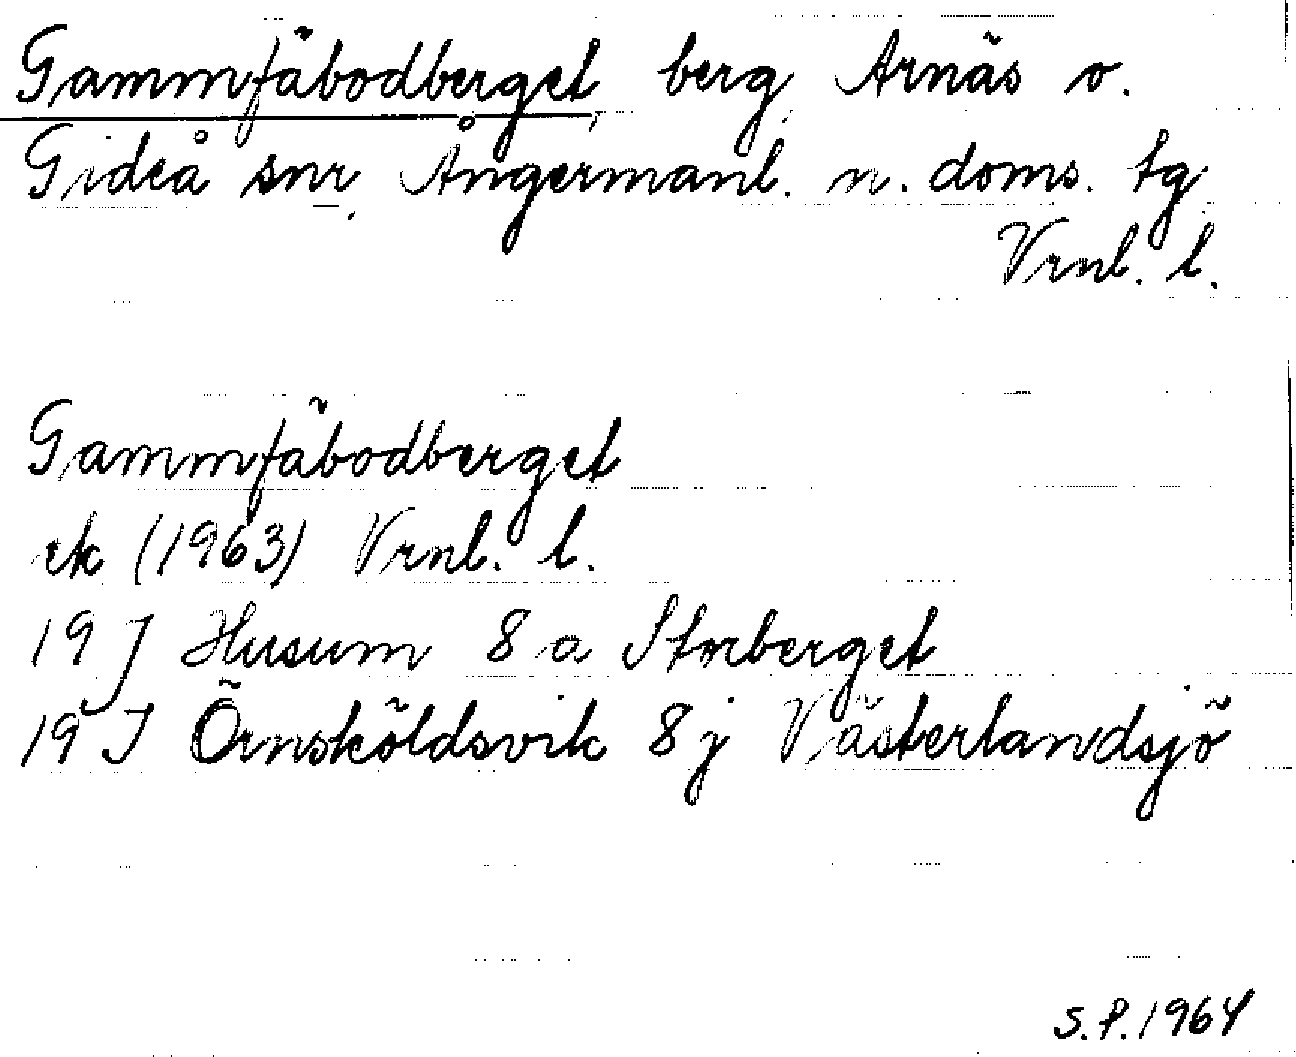 Gammfäbodberget, berg, Arnäs o.
Gideå snr, Ångermanl. n. doms. tg,
Vrnl. l.
Gammfäbodberget
ek (1963) Vrnl. l.
19 J Husum 8 a Storberget
19 I Örnsköldsvik 8 j Västerlandsjö
S.P. 1964